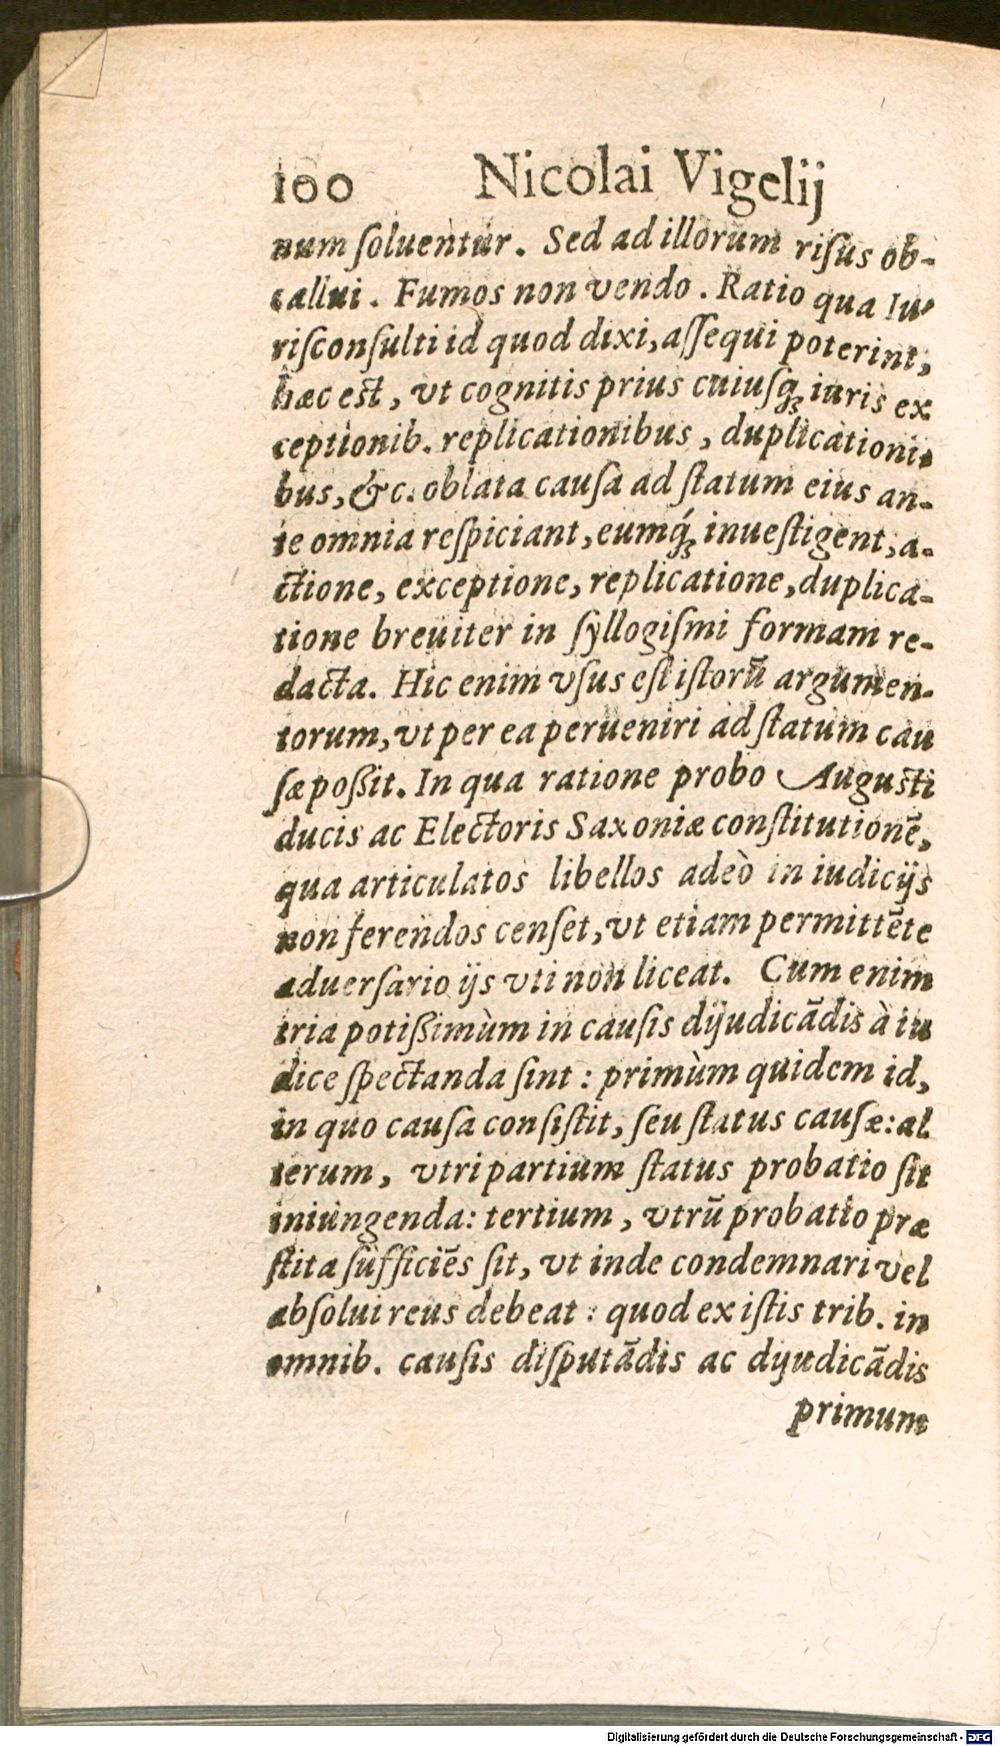 100 Nicolai Vigelij
num ſoluentur. Sed ad illorum riſus ob-
callui. Fumos non vendo. Ratio qua Iu-
riſconſulti id quod dixi, aſſequi poterint,
hæc est, vt cognitis prius cuiuſq́; iuris ex
ceptionib. replicationibus, duplicationi-
bus, &c. oblata cauſa ad ſtatum eius an-
te omnia reſpiciant, eumq́; inueſtigent, a-
ctione, exceptione, replicatione, duplica-
tione breuiter in ſyllogiſmi formam re-
dacta. Hic enim vſus eſt iſtorũ argumen-
torum, vt per ea perueniri ad ſtatum cau
ſæ poßit. In qua ratione probo Auguſti
ducis ac Electoris Saxoniæ conſtitutionẽ,
qua articulatos libellos adeò in iudicijs
non ferendos cenſet, vt etiam permittẽte
aduerſario ijs vti non liceat. Cum enim
tria potißimùm in cauſis dijudicãdis à iu
dice ſpectanda ſint: primùm quidem id,
in quo cauſa conſiſtit, ſeu ſtatus cauſæ: al
terum, vtri partium ſtatus probatio ſit
iniungenda: tertium, vtrũ probatio præ
ſtita ſufficiẽs ſit, vt inde condemnari vel
abſolui reus debeat: quod ex iſtis trib. in
omnib. cauſis diſputãdis ac dijudicãdis
primum
Digitalisierung gefördert durch die Deutsche Forschungsgemeinschaft - DFG